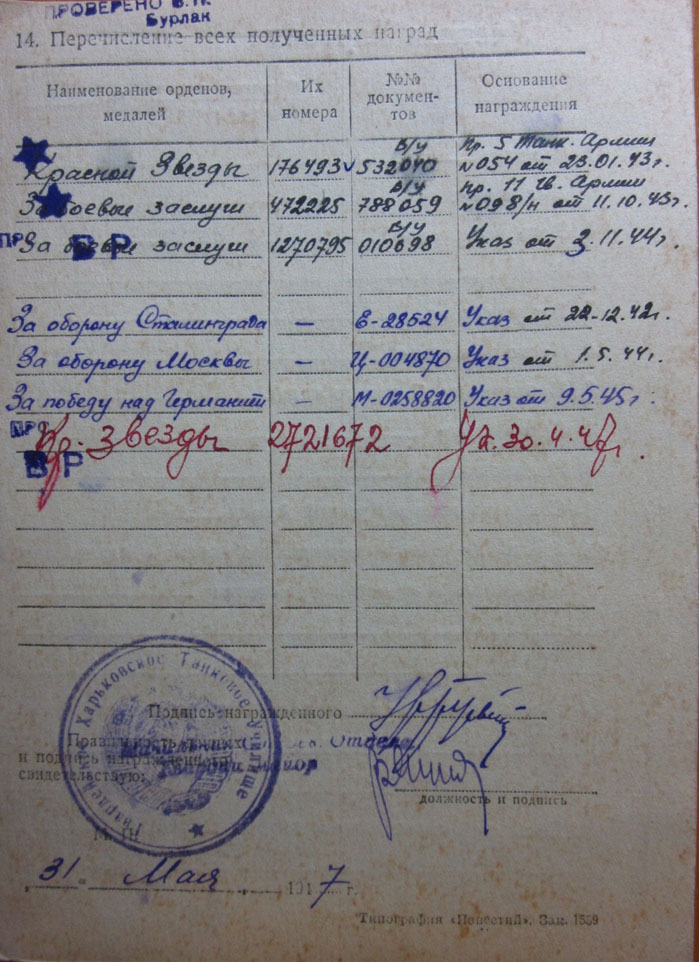 ПРОВЕРЕНО В.П.
Бурлак
14. Перечисление всех полученных наград
Наименование орденов, медалей
Их номера
№№ документов
Основание награждения
Красной Звезды 176493 в/у 532040 Пр. 5 Танк. Армии №054 от 23.01.43г.
За боевые заслуги 472225 в/у 788059 пр. 11 гв. Армии №098/н от 11.10.43г.
За боевые заслуги 1270795 в/у 010698 Указ от 3.11.44г.
За оборону Сталинграда — Е-28524 Указ от 22-12.42г.
За оборону Москвы — Ц-004870 Указ от 1.5.44г.
За победу над Германией — М-0258820 Указ от 9.5.45г.
Кр. звезды 2721672 Ук. 30.4.47г.
ПРО
В Р
ПРО
В Р
Гвардейское Харьковское Танковое Училище
Подпись награжденного
Правильность данных
и подпись награжденного
свидетельствую:
Начальник Отдела
Гвардии майор
должность и подпись
М. П.
31. Мая 1947 г.
Типография «Известий». Зак. 1559